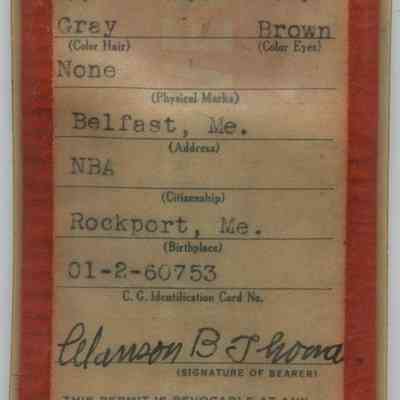 Gray Brown
(Color Hair) (Color Eyes)
None
(Physical Marks)
Belfast, Me.
(Address)
NBA
(Citizenship)
Rockport, Me.
(Birthplace)
01-2-60753
C. G. Identification Card No.
B
(SIGNATURE OF BEARER)
THIS PERMIT IS REVOCABLE AT ANY